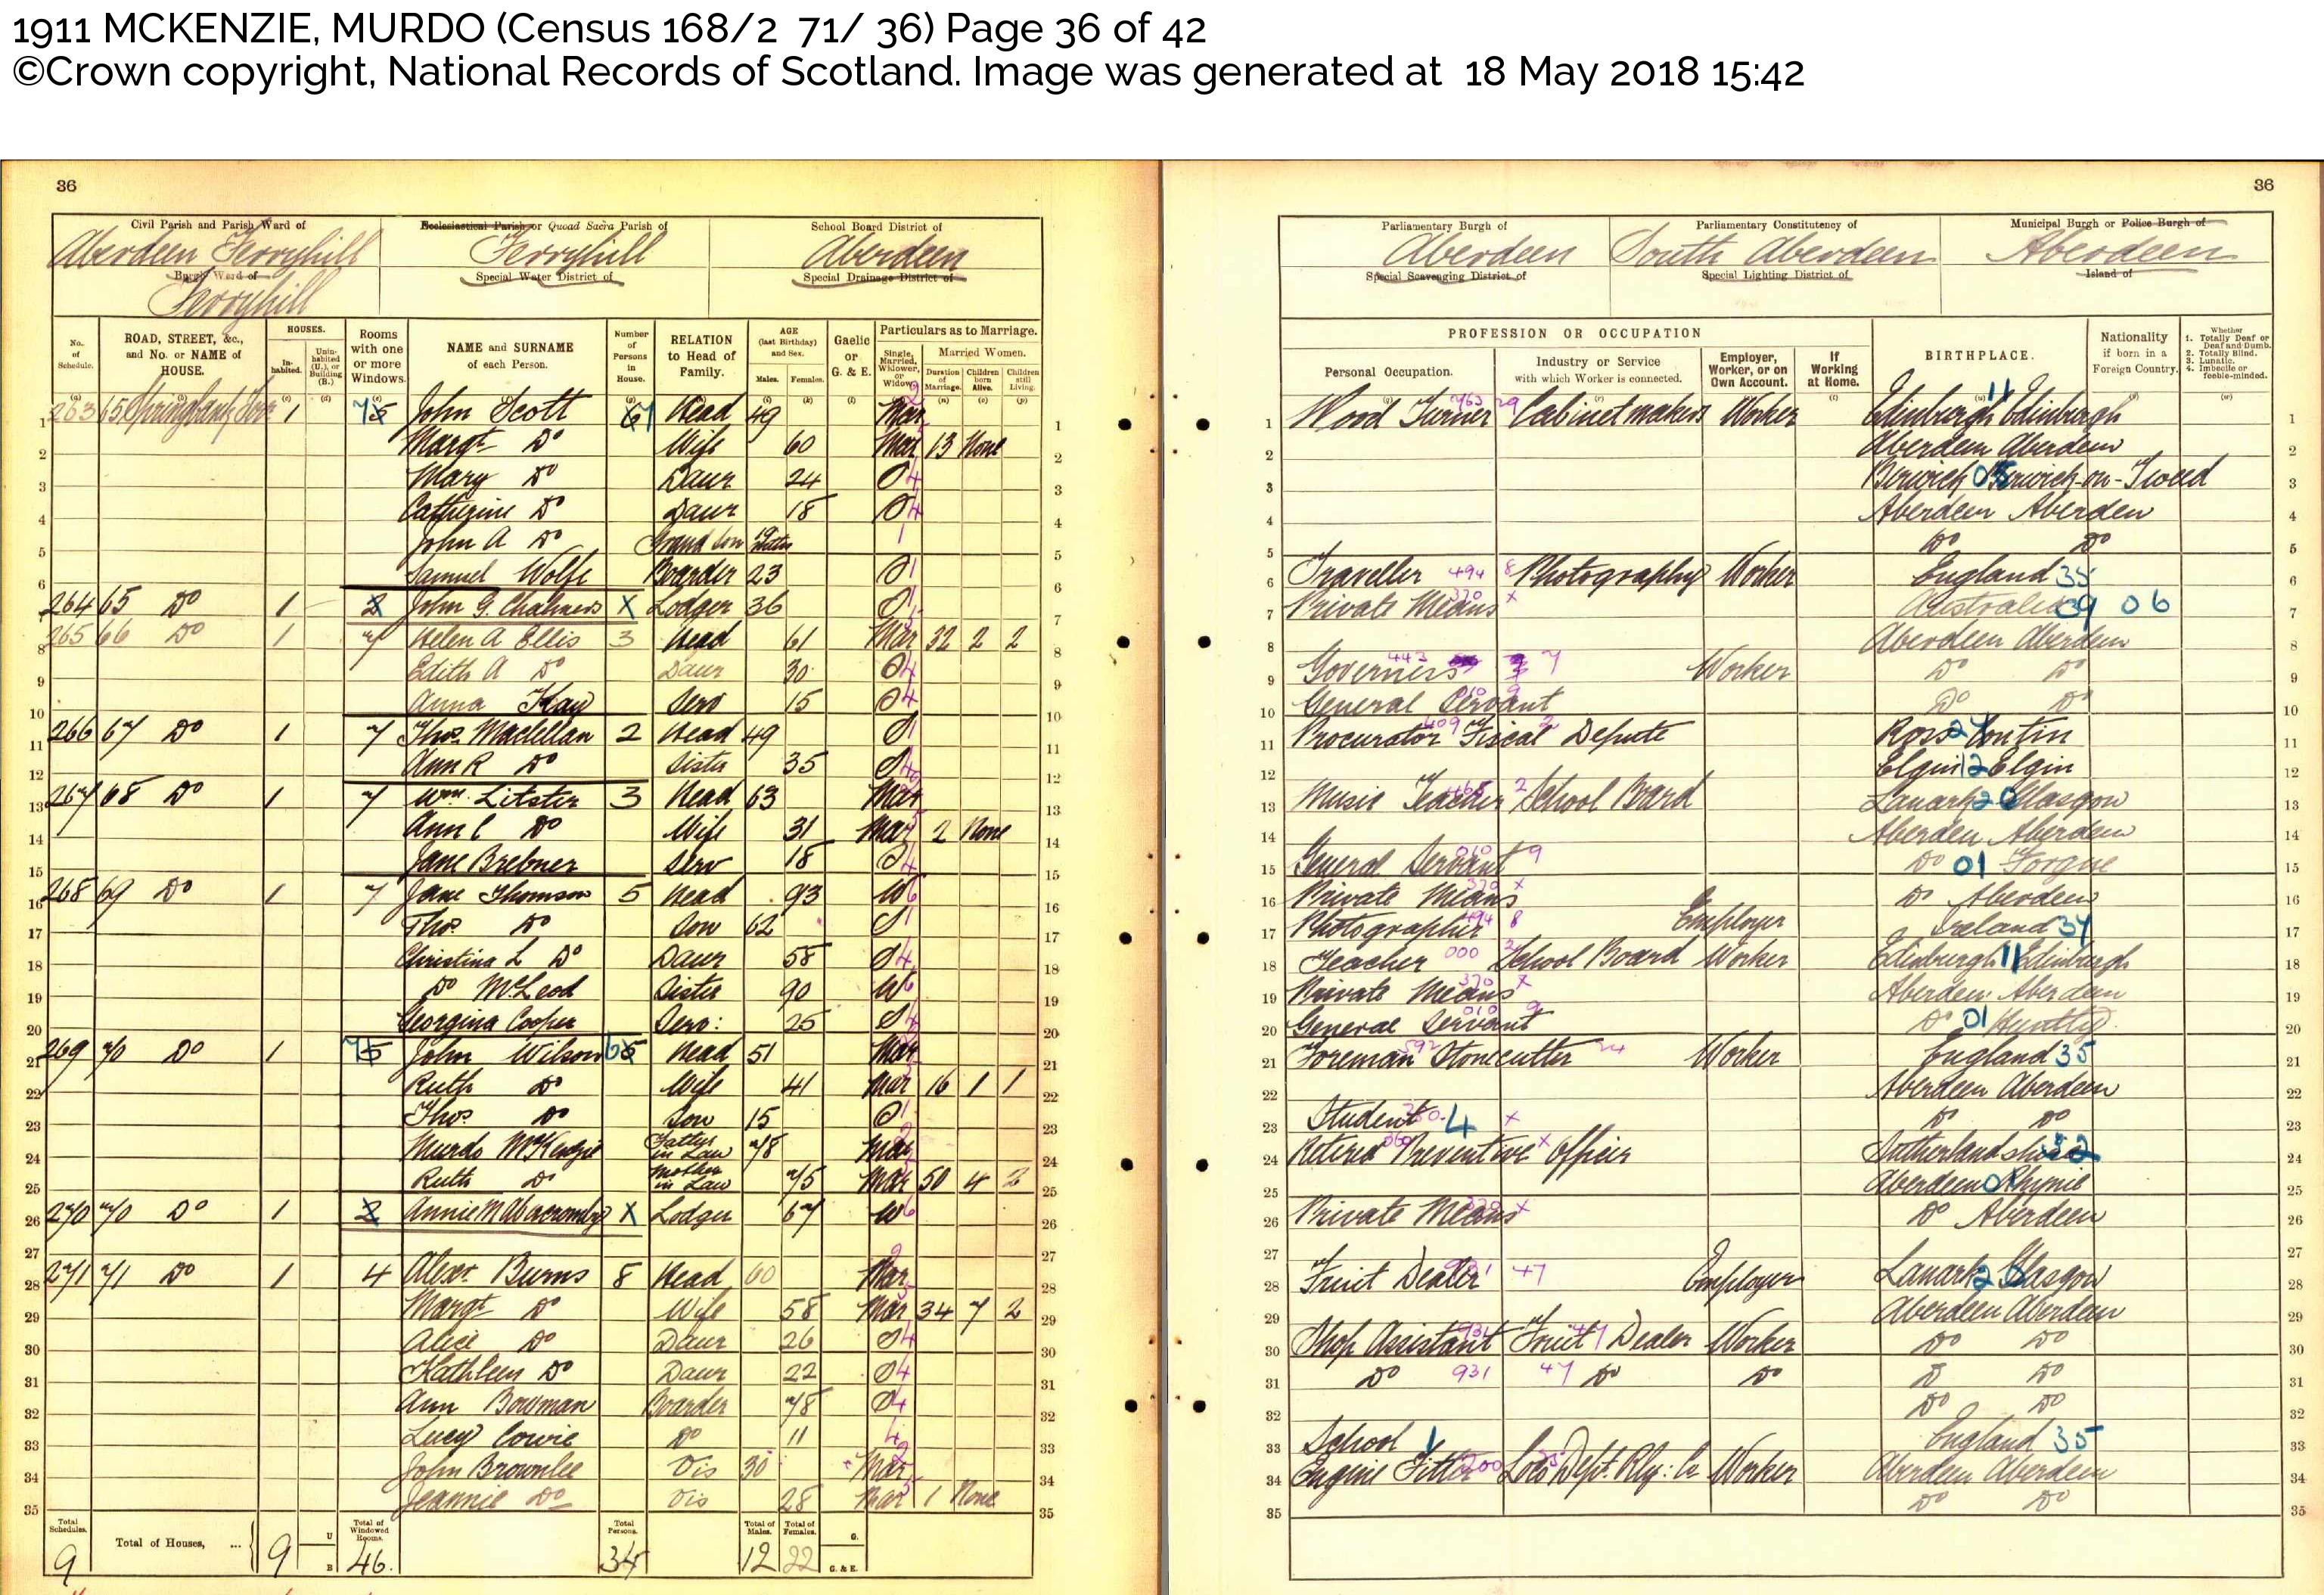 1911 MCKENZIE, MURDO (Census 168/2 71/ 36) Page 36 of 42
©Crown copyright, National Records of Scotland. Image was generated at 18 May 2018 15:42
36 36
Civil Parish and Parish Ward of Ecclesiastical Parish or Quoad Sacra Parish of School Board District of Parliamentary Burgh of Parliamentary Constituency of Municipal Burgh or Police Burgh of
Aberdeen Ferryhill Ferryhill Aberdeen Aberdeen South Aberdeen Aberdeen
Burgh Ward of Special Water District of Special Drainage District of Special Scavenging District of Special Lighting District of Island of
Ferryhill
No. of Schedule. ROAD, STREET, &c., and No. or NAME of HOUSE. HOUSES. Inhabited. Uninhabited (U.), or Building (B.) Rooms with one or more Windows. NAME and SURNAME of each Person. Number of Persons in House. RELATION to Head of Family. AGE (last Birthday) and Sex. Males. Females. Gaelic or G. & E. Particulars as to Marriage. Single, Married, Widower, or Widow. Married Women. Duration of Marriage. Children born Alive. Children still Living.
PROFESSION OR OCCUPATION Personal Occupation. Industry or Service with which Worker is connected. Employer, Worker, or on Own Account. If Working at Home. BIRTHPLACE. Nationality if born in a Foreign Country. Whether 1. Totally Deaf or Deaf and Dumb. 2. Totally Blind. 3. Lunatic. 4. Imbecile or feeble-minded.
1 263 65 Springbank Terr 1 75 John Scott 67 Head 49 Mar Wood Turner Cabinetmakers Worker Edinburgh 11 Edinburgh 1
2 Margt Do Wife 60 Mar 13 None Aberdeen Aberdeen 2
3 Mary Do Daur 24 S Berwick Berwick-on-Tweed 3
4 Catherine Do Daur 18 S Aberdeen Aberdeen 4
5 John A Do Grand Son Do Do 5
6 Samuel Wolfe Boarder 23 S Traveller 494 8 Photography Worker England 35 6
7 264 65 Do 1 2 John G. Chalmers X Lodger 36 S Private Means Australia 39 06 7
8 265 66 Do 1 7 Helen A Ellis 3 Head 61 Mar 32 2 2 Aberdeen Aberdeen 8
9 Edith A Do Daur 30 S Governess 443 7 Worker Do Do 9
10 Anna Kay Serv 15 S General Servant Do Do 10
11 266 67 Do 1 7 Thos. Maclellan 2 Head 49 S Procurator Fiscal Depute Ross 27 Contin 11
12 Ann R Do Sister 35 S Elgin 12 Elgin 12
13 267 68 Do 1 7 Wm. Litster 3 Head 63 Mar Music Teacher School Board Lanark 20 Glasgow 13
14 Ann C Do Wife 31 Mar 2 None Aberdeen Aberdeen 14
15 Jane Brebner Serv 18 S General Servant Do 01 Forgue 15
16 268 69 Do 1 7 Jane Thomson 5 Head 93 W Private Means Do Aberdeen 16
17 Thos. Do Son 62 S Photographer 494 8 Employer Ireland 37 17
18 Christina L Do Daur 58 S Teacher 000 School Board Worker Edinburgh 11 Edinburgh 18
19 Do McLeod Sister 90 W Private Means Aberdeen Aberdeen 19
20 Georgina Cooper Serv: 25 S General Servant Do 01 Huntly 20
21 269 70 Do 1 75 John Wilson 65 Head 51 Mar Foreman Stonecutter Worker England 35 21
22 Ruth Do Wife 41 Mar 16 1 1 Aberdeen Aberdeen 22
23 Thos. Do Son 15 S Student 4 Do Do 23
24 Murdo McKenzie Father in Law 78 Mar Retired Preventive Officer Sutherlandshire 32 24
25 Ruth Do Mother in Law 75 Mar 50 4 2 Aberdeen 01 Rhynie 25
26 270 70 Do 1 2 Annie M Abacromby X Lodger 67 W Private Means Do Aberdeen 26
27 27
28 271 71 Do 1 4 Alexr. Burns 8 Head 60 Mar Fruit Dealer 931 47 Employer Lanark Glasgow 28
29 Margt Do Wife 58 Mar 34 7 2 Aberdeen Aberdeen 29
30 Alice Do Daur 26 S Shop Assistant 931 47 Fruit Dealer Worker Do Do 30
31 Kathleen Do Daur 22 S Do 931 47 Do Do Do Do 31
32 Ann Bowman Boarder 78 S Do Do 32
33 Lucy Cowie Do 11 School 1 England 35 33
34 John Brownlee Vis 30 Mar Engine Fitter Loco Dept. Rly: Co Worker Aberdeen Aberdeen 34
35 Jeannie Do Vis 28 Mar 1 None Do Do 35
Total Schedules. 9 Total of Houses, ... 9 U B Total of Windowed Rooms. 46. Total Persons. 34 Total of Males. 12 Total of Females. 22 G. G. & E.